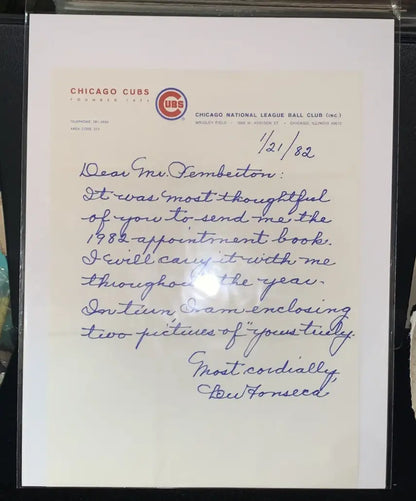 CHICAGO CUBS
FOUNDED 1876
CUBS
CHICAGO NATIONAL LEAGUE BALL CLUB (INC.)
WRIGLEY FIELD · ADDISON ST · CHICAGO, ILLINOIS
TELEPHONE
AREA CODE 312
1/21/82
Dear Mr. Pemberton:
It was most thoughtful
of you to send me the
1982 appointment book.
I will carry it with me
throughout the year.
In turn, I am enclosing
two pictures of "yours truly.
Most cordially,
Lew Fonseca